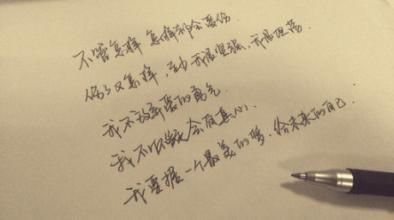 不管怎样 怎样都会受伤.
伤了又怎样,至少我很坚强,我很坦荡.
我不放弃爱的勇气
我不怀疑会有真心.
我要握一个最美的梦,给未来的自己.